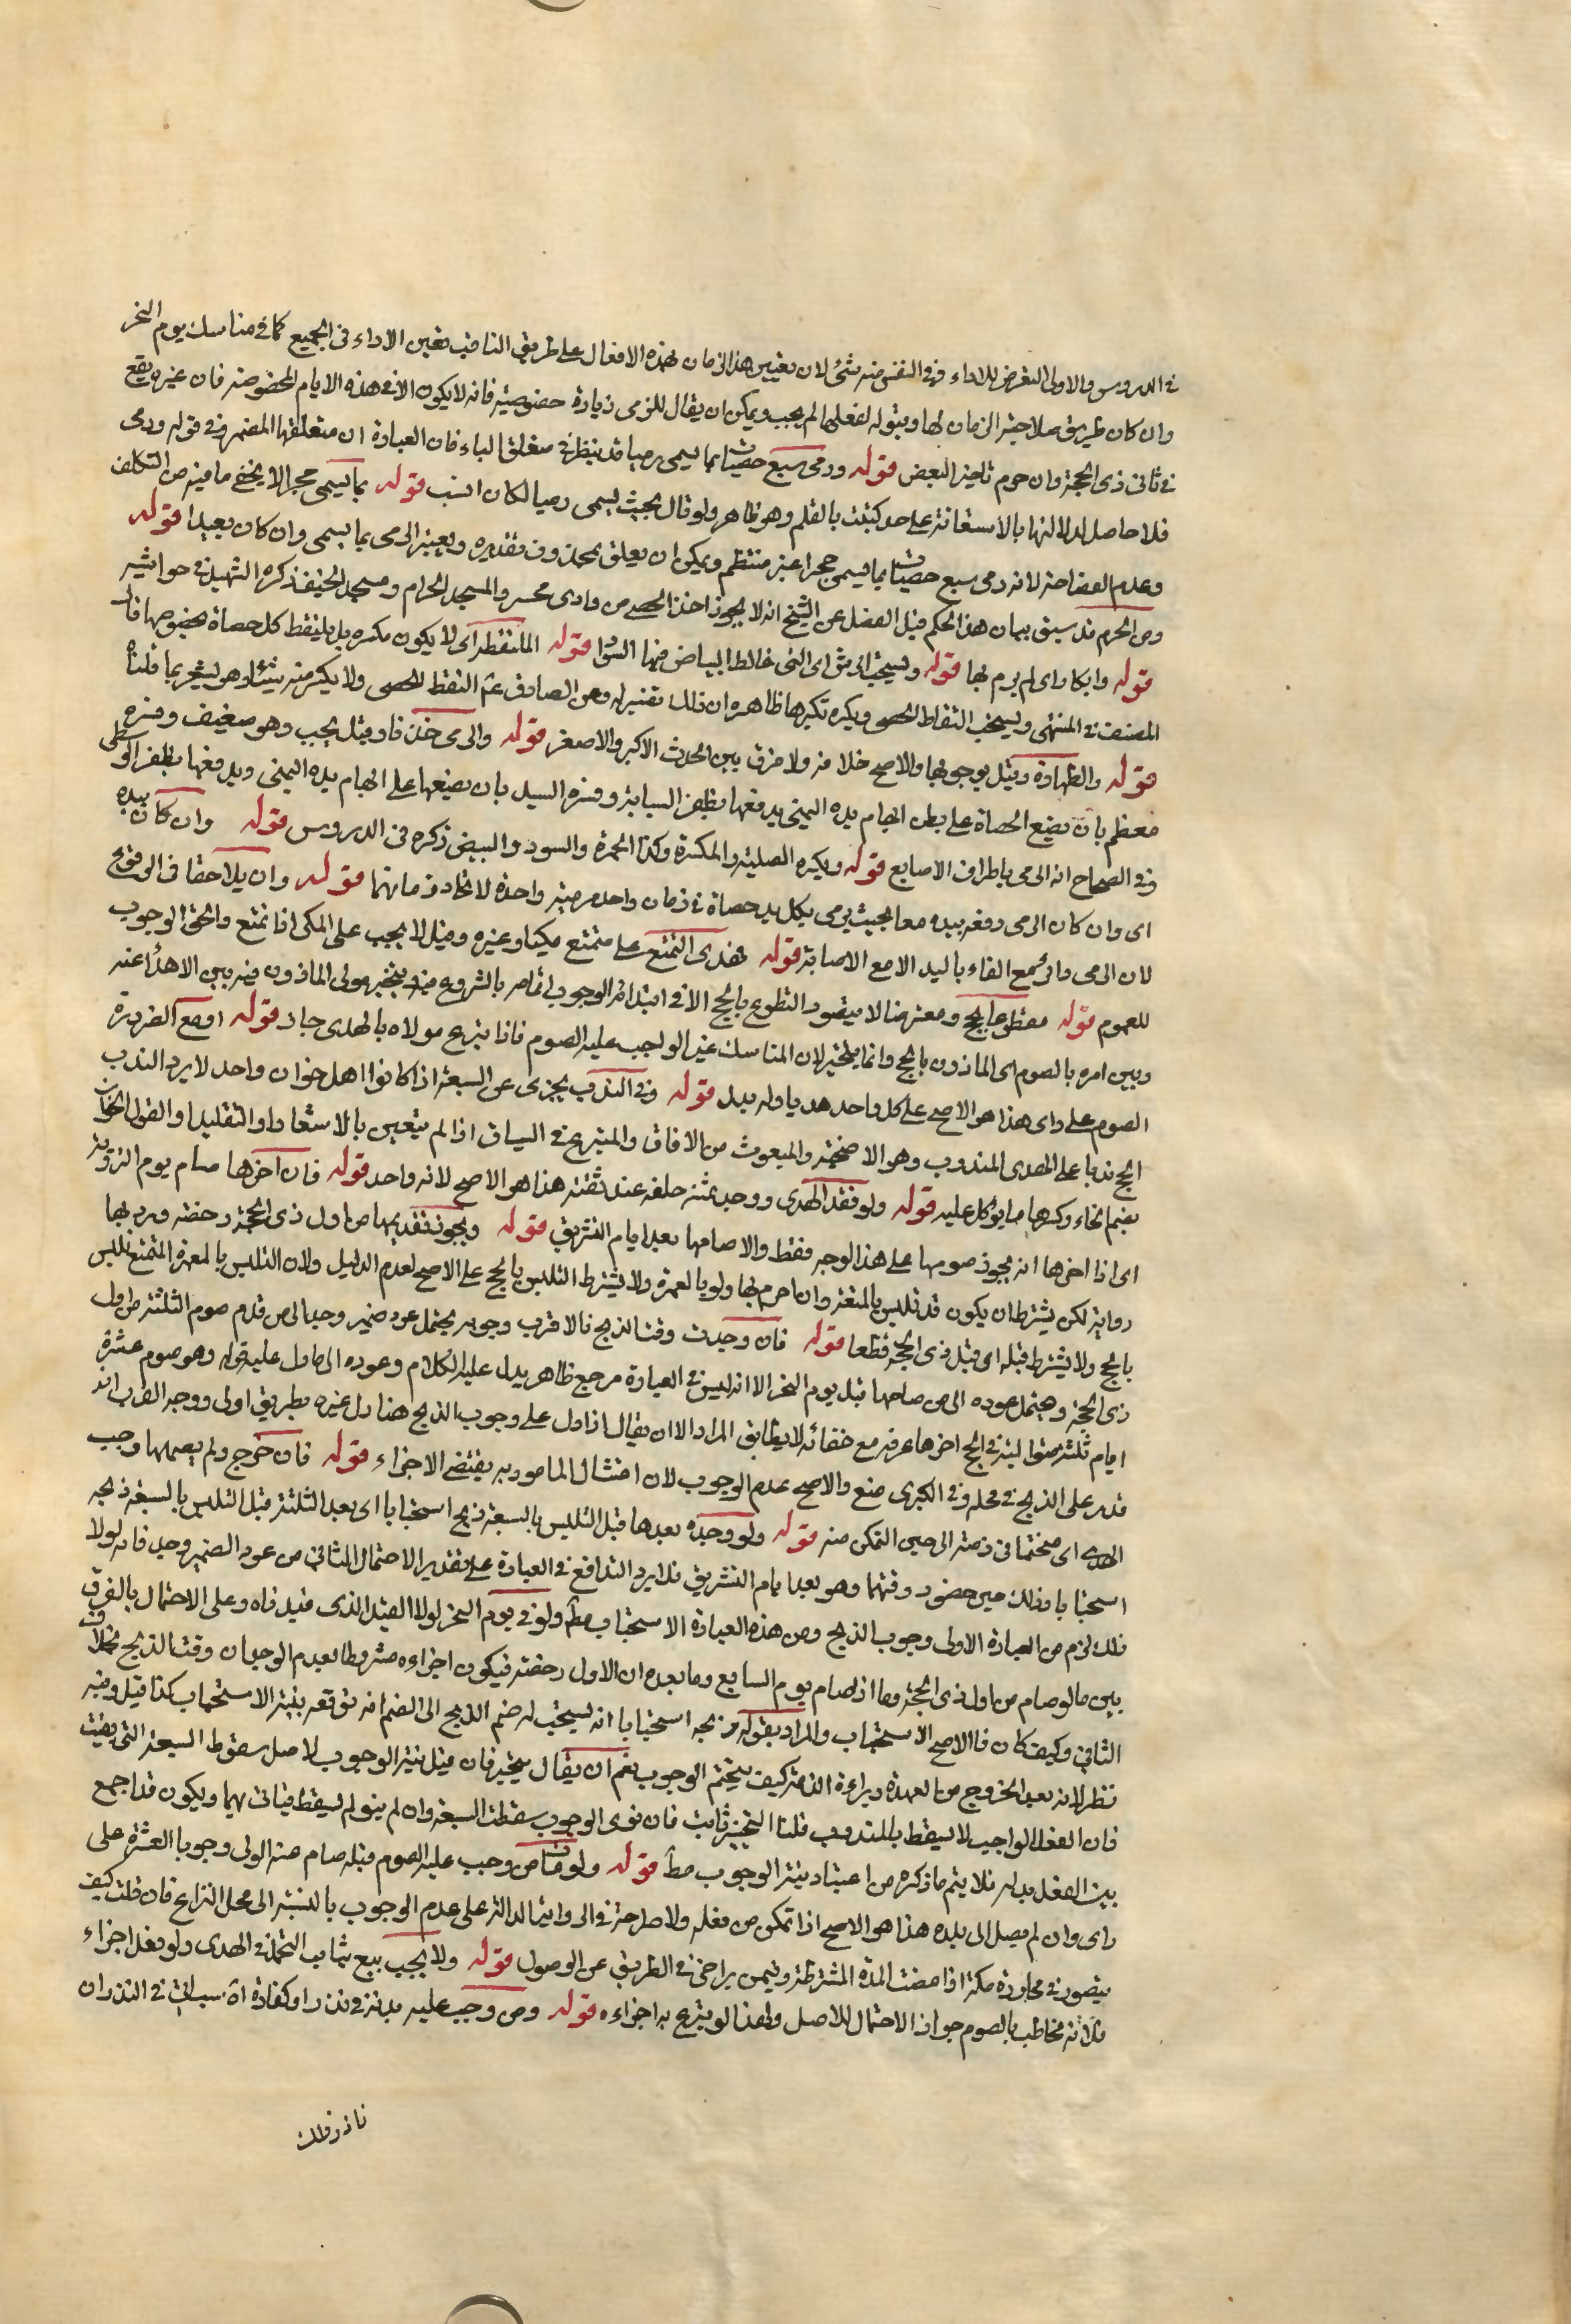 في الدروس والاولى التعرض للاداء وفي النفس منه شئ لان تعيين هذا الزمان لهذه الافعال على طريق الناقب تعين الاداء في الجميع كما في مناسك يوم النحر
وان كان طريق صلاحية الزمان لها وبقوله لفعلها لم يجب ويمكن ان يقال للرمى زيادة خصوصية فانه لا يكون الا في هذه الايام المخصوصة فان غيره يقع
في ثانى ذى الحجة وان حرم تاخير البعض قوله ورمى سبع حصيات بما يسمى رميا قد ينظر في متعلق الباء فان العبارة ان متعلقها المضمر في قوله ورمى
فلا حاصل لدلالتها بالاستعانة على حد كتبت بالقلم وهو ظاهر ولو قال بحيث يسمى رميا لكان انسب قوله بما يسمى حجرا لا يخفى ما فيه من التكلف
وعدم الفصاحة لانه رمى سبع حصيات بما يسمى حجرا غير منتظم ويمكن ان يعلق بمحذوف تقديره ويعتبر الرمى بما يسمى وان كان بعيدا قوله
ومن الحرم قد سبق بيان هذا الحكم قبل الفصل عن الشيخ انه لا يجوز اخذ الحصى من وادى محسر والمسجد الحرام ومسجد الخيف ذكره الشهيد في حواشيه
قوله وابكارا اى لم يرم بها قوله ويستحب البرش اى التى خالط البياض فيها السواد قوله الملتقطة اى لا يكون مكسره بل يلتقط كل حصاة بخصوصها قال
المصنف في المنتهى ويستحب التقاط الحصى ويكره تكسيرها ظاهره ان ذلك تفسير له وعن الصادق عم التقط الحصى ولا تكسر منه شيئا وهو يشعر بما قلناه
قوله والطهارة وقيل بوجوبها والاصح خلافه ولا فرق بين الحدث الاكبر والاصغر قوله والرمى خذفا وقيل يجب وهو ضعيف وفسره
معظم بان يضع الحصاة على بطن ابهام يده اليمنى يدفعها بظفر السبابة وفسره السيد بان يضعها على ابهام يده اليمنى ويدفعها بظفر الوسطى
وفي الصحاح انه الرمى باطراف الاصابع قوله ويكره الصلبة والمكسرة وكذا الحمرة والسود والبيض ذكره في الدروس قوله وان كان بيده
اى وان كان الرمى دفعه بيده معا بحيث يرمى بكل يد حصاة في زمان واحد مرمية واحدة لاتحاد زمانهما قوله وان يلاحقا في الوقوع
لان الرمى والى سمع القاء باليد الا مع الاصابة قوله هدى التمتع على متمتع مكيا وغيره وقيل لا يجب على المكى اذا تمتع والحق الوجوب
للعموم قوله متطوعا بالحج ومفترضا لا يتصور التطوع بالحج الا في ابتدائه الوجوب اتمامه بالشروع فيه يتخير مولى الماذون فيه بين الاهداء عنه
وبين امره بالصوم اى الماذون بالحج وانما يتخير لان المناسك غير الواجب عليه الصوم فاذا تبرع مولاه بالهدى جاز قوله او مع الضرورة
الصوم على راى هذا هو الاصح على كل واحد هديا وله بدل قوله وفي الندب يجزى عن السبعة اذا كانوا اهل خوان واحد لا يريد الندب
الحج ندبا على الهدى المندوب وهو الاضحية والمبعوث من الافاق والمتبرع في السياق اذا لم يتعين بالاشعار او التقليد او القول الخوان
بضم الخاء وكسرها ما يوكل عليه قوله ولو فقد الهدى ووجد ثمنه خلفه عند ثقته هذا هو الاصح لانه واحد قوله فان اخرها صام يوم التروية
اى اذا اخرها انه يجوز صومها على هذا الوجه فقط والا صامها بعد ايام التشريق قوله ويجوز تقديمها من اول ذى الحجة رخصة ورد بها
رواية لكن يشترط ان يكون قد تلبس بالمتعة وان احرم بها ولو بالعمرة ولا يشترط التلبس بالحج على الاصح لعدم الدليل ولان التلبس بالعمرة المتمتع تلبس
بالحج ولا يشترط قبله اى قبل ذى الحجة قطعا قوله فان وجدت وقت الذبح فالاقرب وجوبه يحتمل عود ضمير وجد الى من قدم صوم الثلثة من اول
ذى الحجة ويحتمل عوده الى من صامها قبل يوم النحر الا انه ليس في العبارة مرجع ظاهر يدل عليه الكلام وعوده الى ما دل عليه قوله وهو صوم عشرة
ايام ثلثة متوالية في الحج اخرها عرفه مع خفائه لا يطابق المراد الا ان يقال اذا دل على وجوب الذبح هذا دل غيره بطريق اولى ووجه القرب انه
قدر على الذبح في محله وفي الكبرى منع والاصح عدم الوجوب لان امتثال المامور به يقتضى الاجزاء قوله فان خرج ولم يصمها وجب
الهدى اى متحتما في ذمته الى حين التمكن منه قوله ولو وجده بعدها قبل التلبس بالسبعة ذبح استحبابا اى بعد الثلثة قبل التلبس بالسبعة ذبحه
استحبابا وذلك حين حضور وقتها وهو بعد ايام التشريق فلا يرد التدافع في العبارة على تقدير الاحتمال الثانى من عود الضمير وجد فانه لولا
ذلك لزم من العبارة الاولى وجوب الذبح ومن هذه العبارة الاستحباب مطلقا ولو في يوم النحر لولا القيد الذى قيدناه وعلى الاحتمال بالفرق
بين ما لو صام من اول ذى الحجة وما اذا صام يوم السابع وما بعده ان الاول رخصة فيكون اجزاءه مشروطا بعدم الوجدان وقت الذبح بخلاف
الثانى وكيف كان فالاصح الاستحباب والمراد بقوله ذبحه استحبابا انه يستحب له ضم الذبح الى الضم انه توقعه بنية الاستحباب كذا قيل وفيه
نظر لانه بعد الخروج من العهدة وبراءة الذمة كيف يتحتم الوجوب نعم ان يقال يتخير فان قيل بنية الوجوب لاصل سقوط السبعة التى بقيت
فان الفعل الواجب لا يسقط بالمندوب قلنا التخير ثابت فان نوى الوجوب سقطت السبعة وان لم ينو لم يسقط فياتى بها ويكون قد اجمع
بين الفعل بدله فلا يتم ما ذكره من اعتبار نية الوجوب مطلقا قوله ولو مات من وجب عليه الصوم قبله صام عنه الولى وجوبا العشرة على
راى وان لم يصل الى بلده هذا هو الاصح اذا تمكن من فعله ولا صراحة في الرواية الدالة على عدم الوجوب بالنسبة الى محل النزاع فان قلت كيف
يتصور في مجاورة مكة اذا مضت المدة المشترطة وفيمن يراخى في الطريق عن الوصول قوله ولا يجب بيع ثياب التجمل في الهدى ولو فعل اجزاء
فلانه مخاطب بالصوم جواز الاحتمال للاصل ولهذا لو تبرع به اجزاءه قوله ومن وجب عليه بدنة في نذر او كفارة اه سياتى في النذر ان